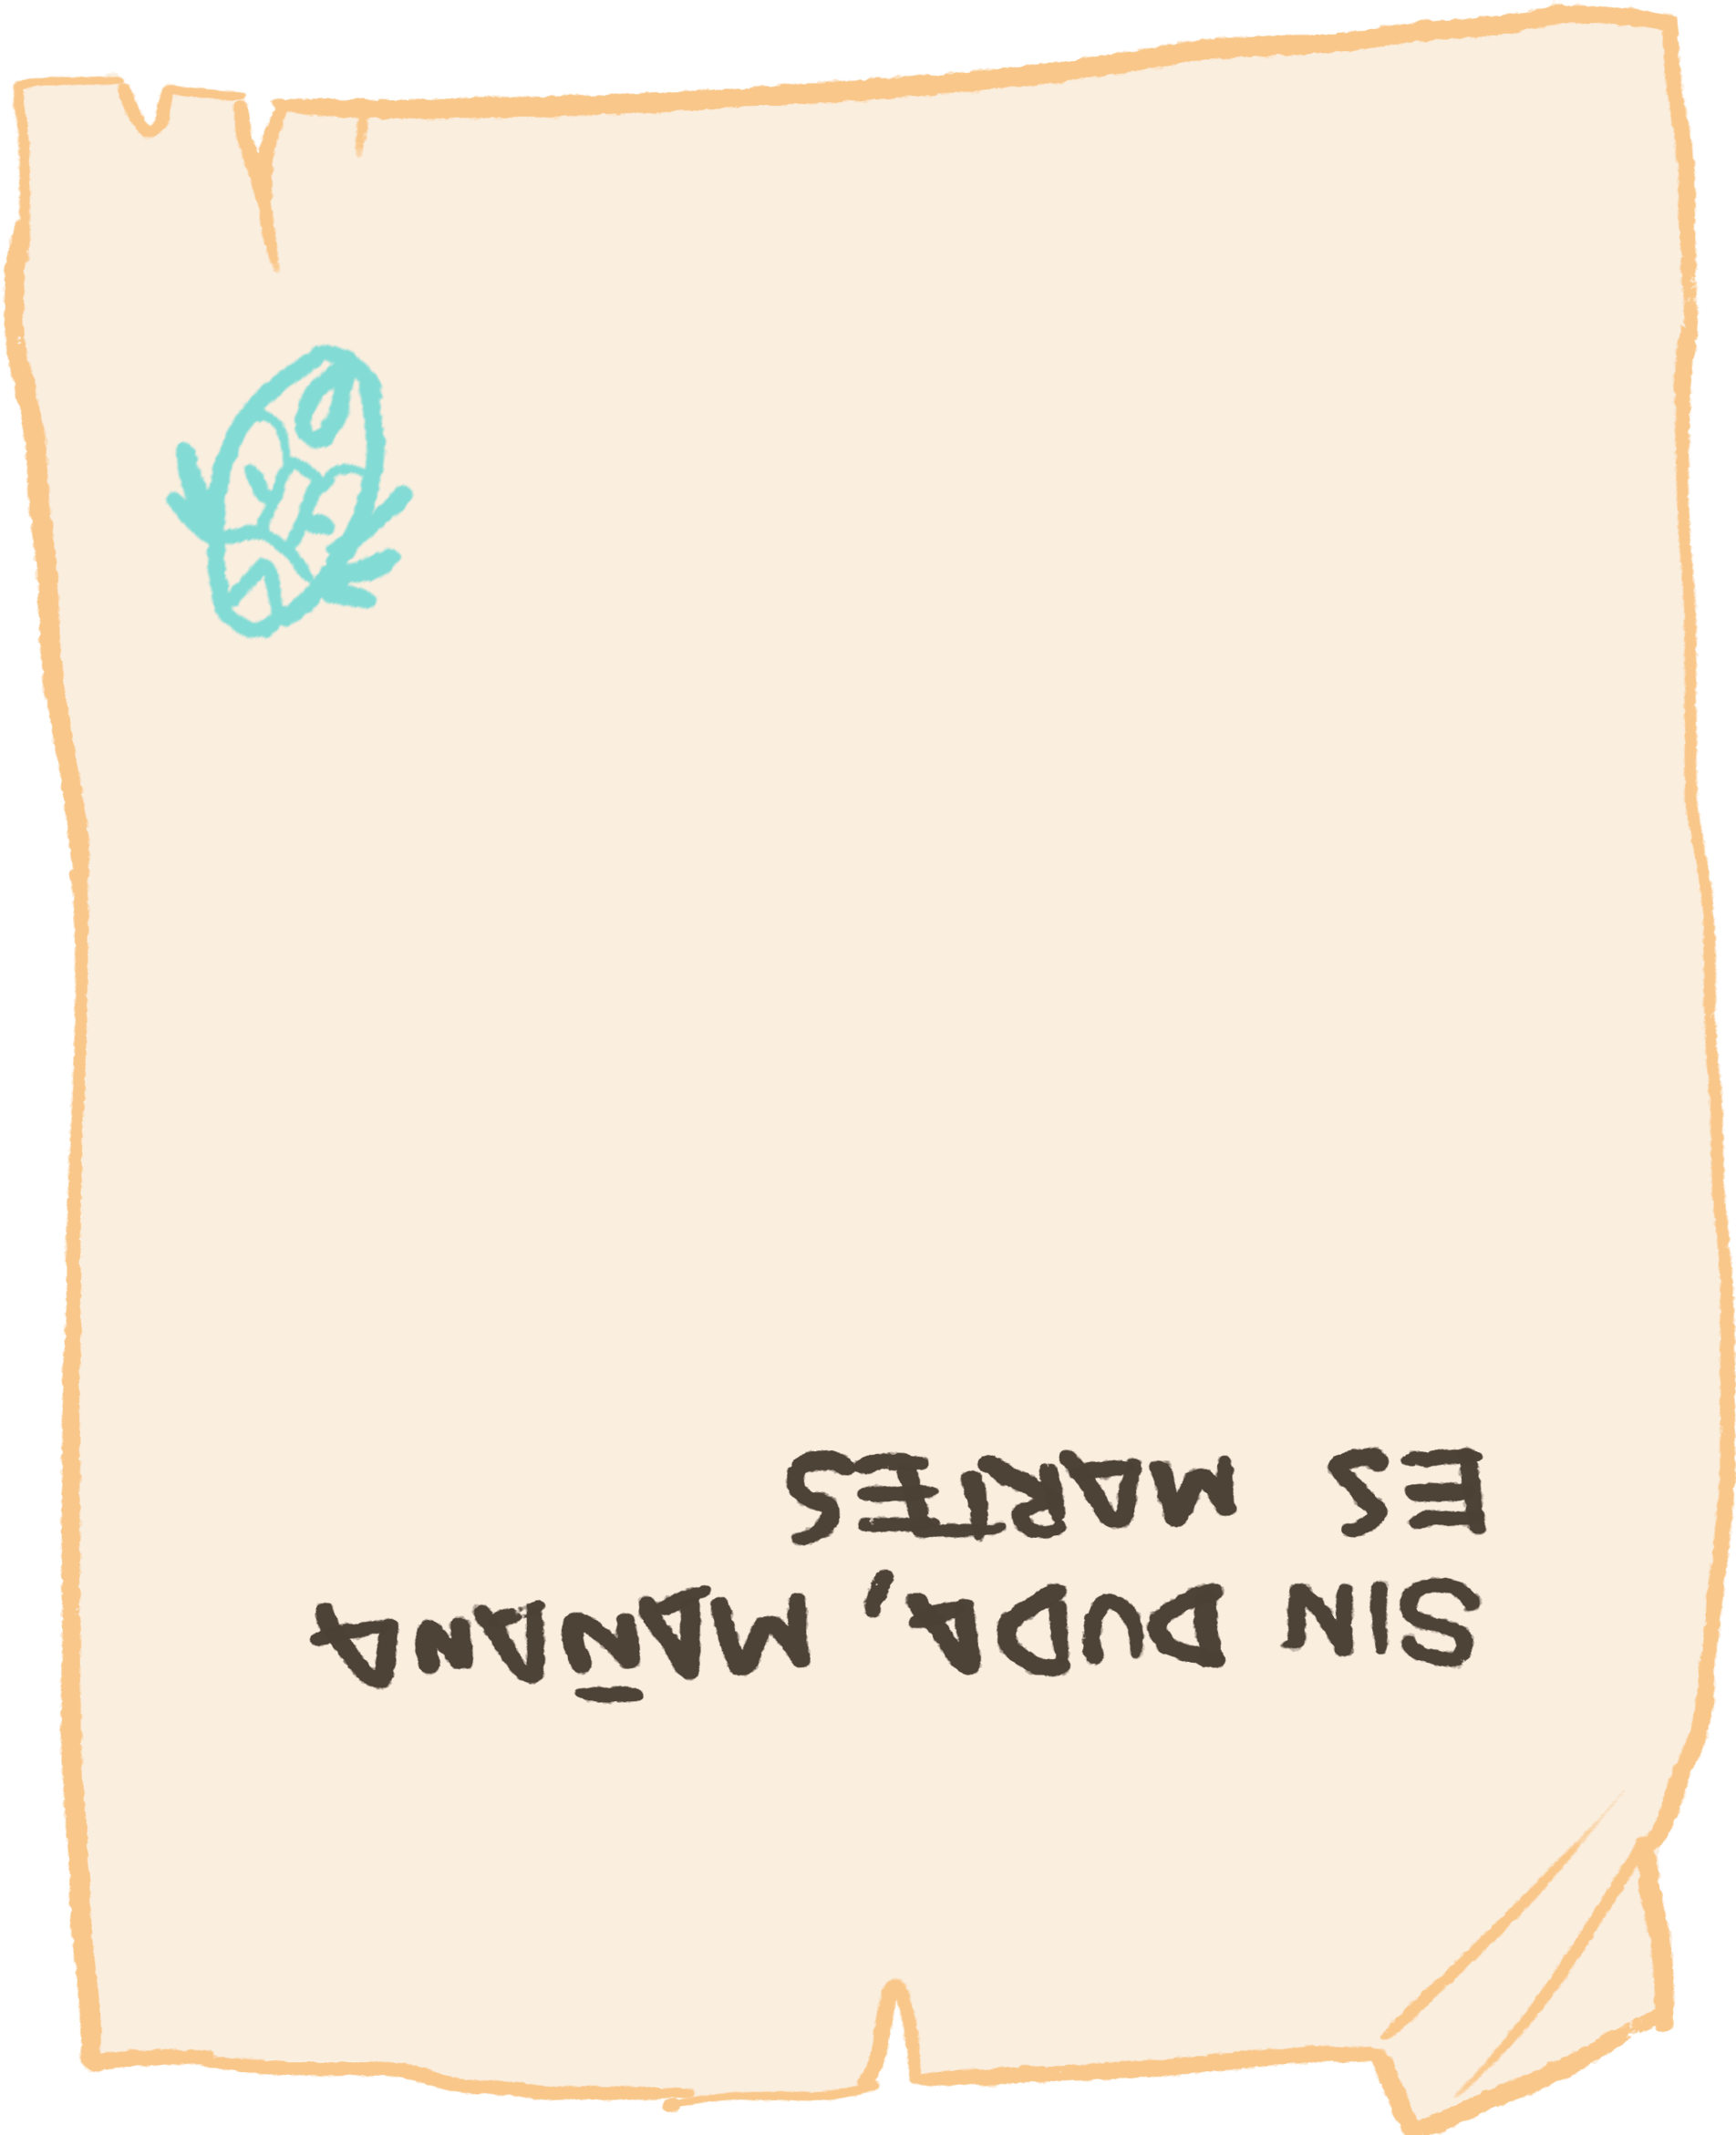 SIN DUDA, MAÑANA
ES MARTES